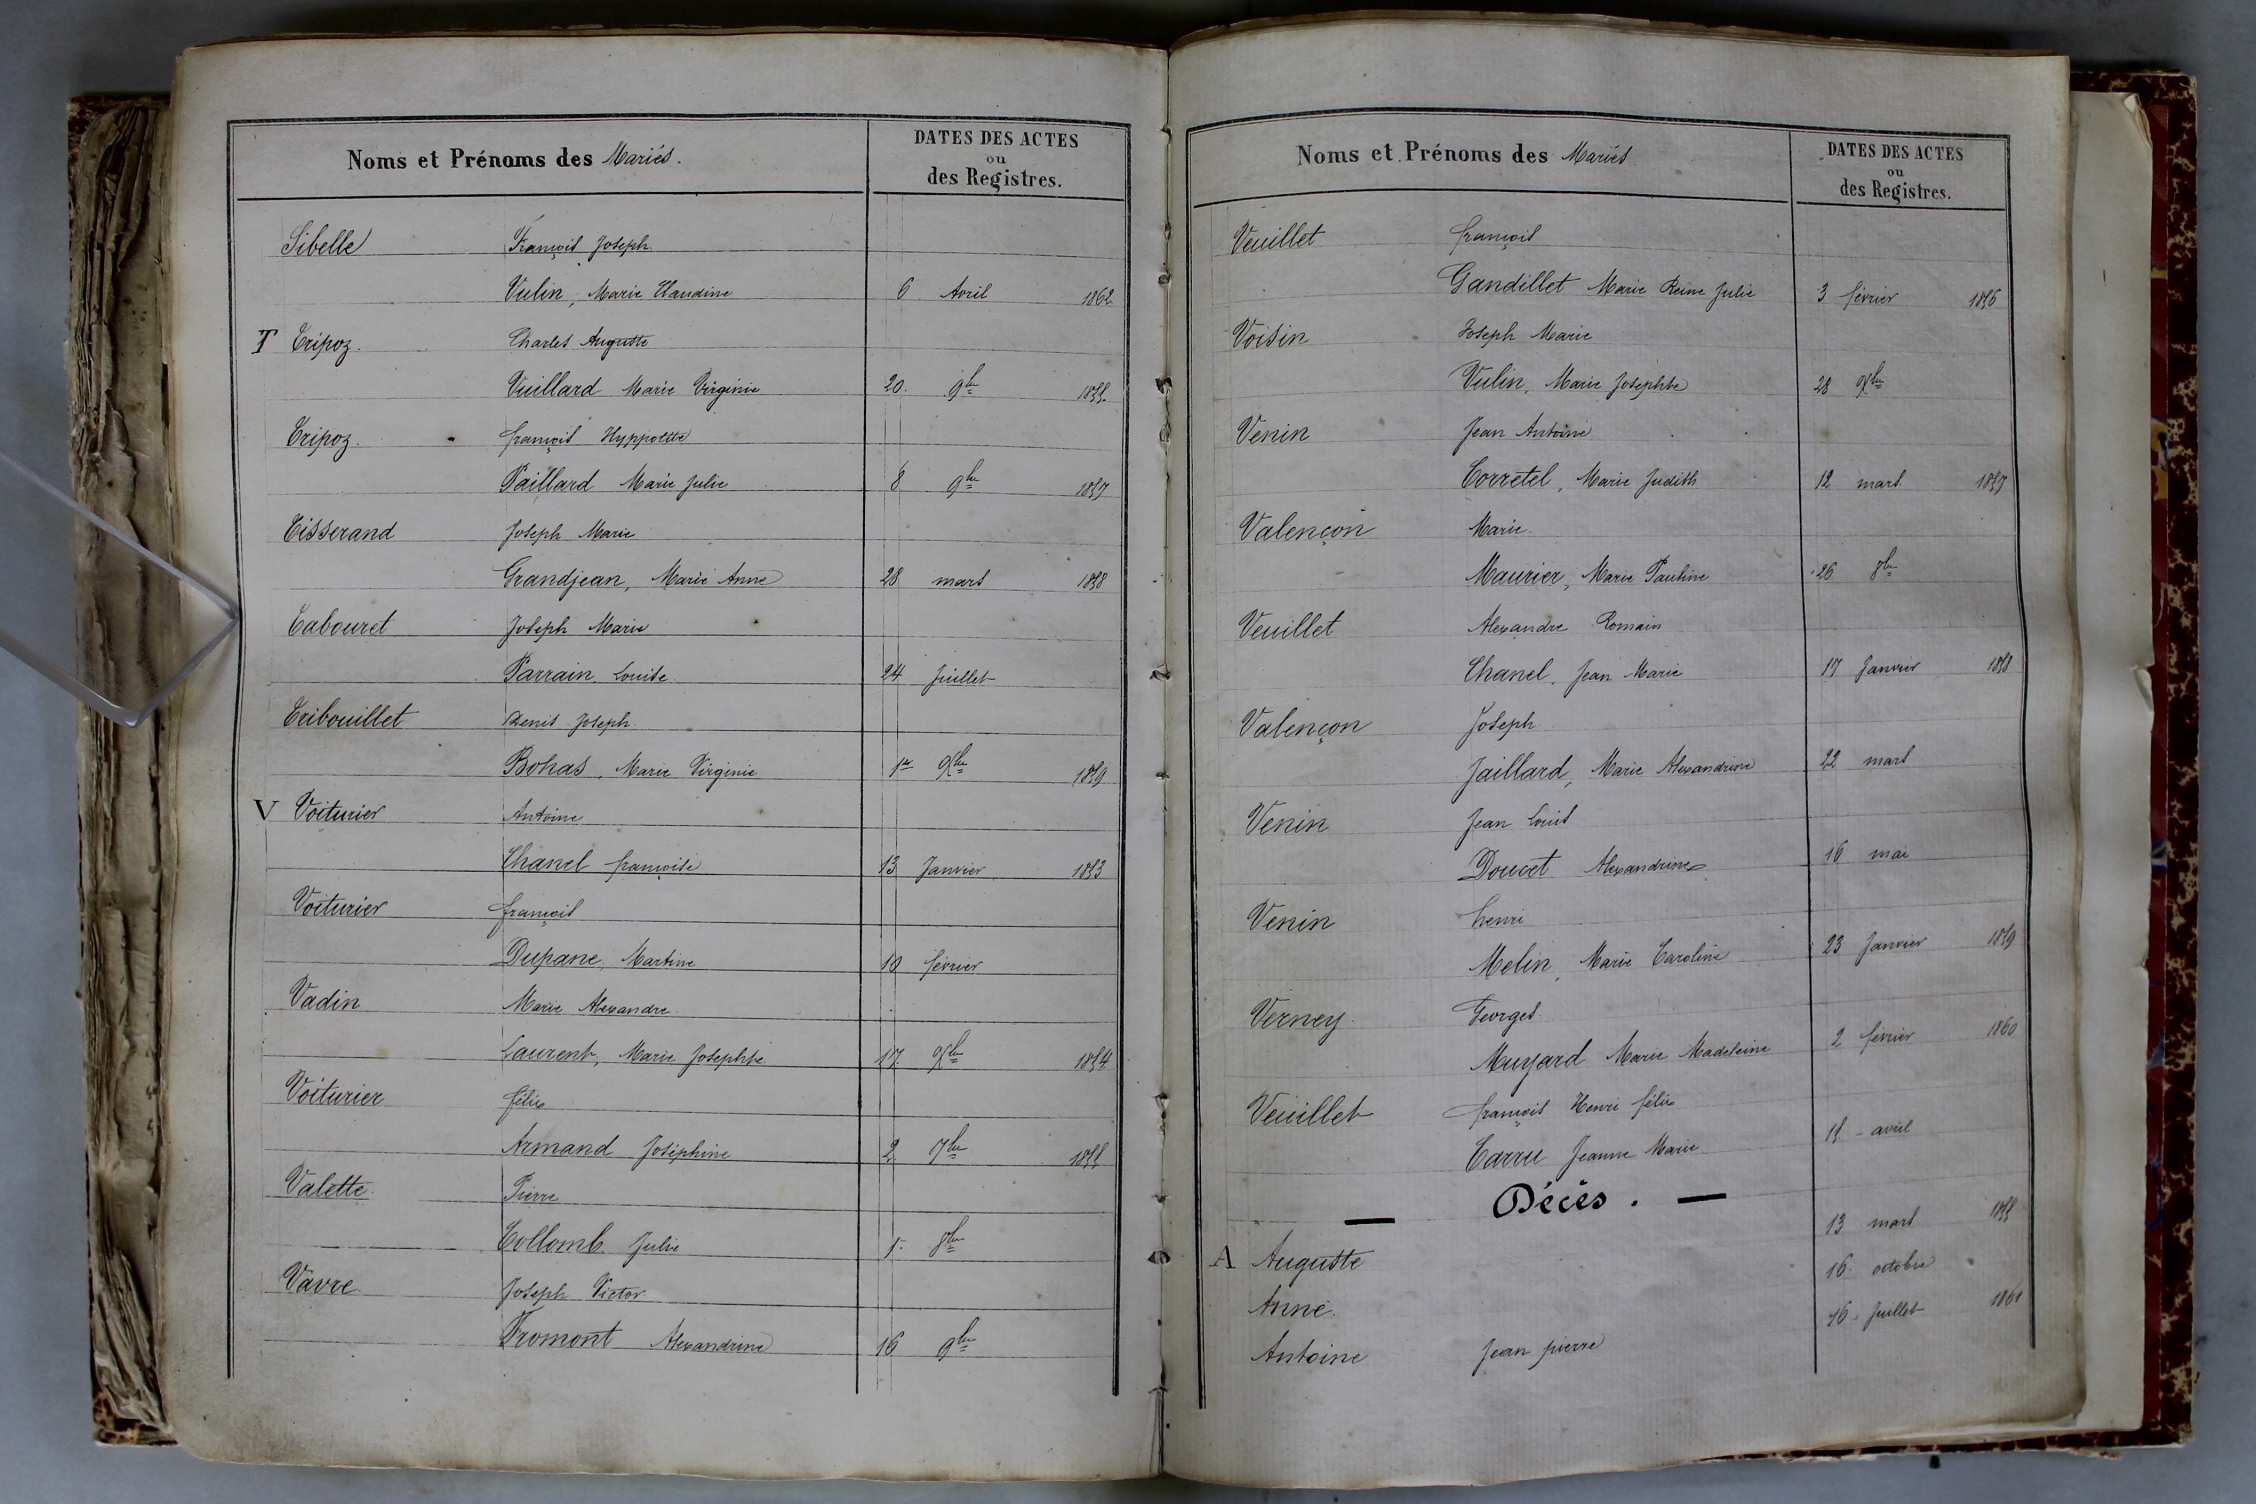 Noms et Prénoms des Mariés.
DATES DES ACTES
ou
des Registres.
Sibelle François Joseph
Vulin, Marie Claudine 6 Avril 1862
T Tripoz. Charles Auguste
Vuillard Marie Virginie 20. 9bre 1855.
Tripoz. François Hyppolitte
Paillard Marie Julie 8 9bre 1857
Tisserand Joseph Marie
Grandjean, Marie Anne 28 mars 1858
Tabouret Joseph Marie
Parrain Louise 24 Juillet
Tribouillet Denis Joseph
Bohas, Marie Virginie 1er Xbre 1859
V Voiturier Antoine
Chanel françoise 13 Janvier 1853
Voiturier françois
Dupane, Martine 10 février
Vadin Marie Alexandre
Laurent, Marie Josephte 17 Xbre 1854
Voiturier félix
Armand Joséphine 2 7bre 1855
Valette Pierre
Collomb Julie 5. 8bre
Vavre Joseph Victor
Fromont Alexandrine 16 9bre
Noms et Prénoms des Mariés
DATES DES ACTES
ou
des Registres.
Veuillet françois
Gandillet Marie Reine Julie 3 février 1856
Voisin Joseph Marie
Vulin, Marie Josephte 28 Xbre
Venin Jean Antoine
Corretel, Marie Judith 12 mars 1857
Valençon Marie
Maurier, Marie Pauline 26 8bre
Veuillet Alexandre Romain
Chanel, Jean Marie 17 Janvier 1858
Valençon Joseph
Jaillard, Marie Alexandrine 22 mars
Venin Jean Louis
Doucet Alexandrine 16 mai
Venin henri
Melin, Marie Caroline 23 Janvier 1859
Verney Georges
Muyard Marie Madeleine 2 février 1860
Veuillet françois Henri félix
Carru Jeanne Marie 15 - avril
— Décès. —
A Auguste 13 mars 1855
Anne. 16. octobre
Antoine Jean pierre 16. Juillet 1861